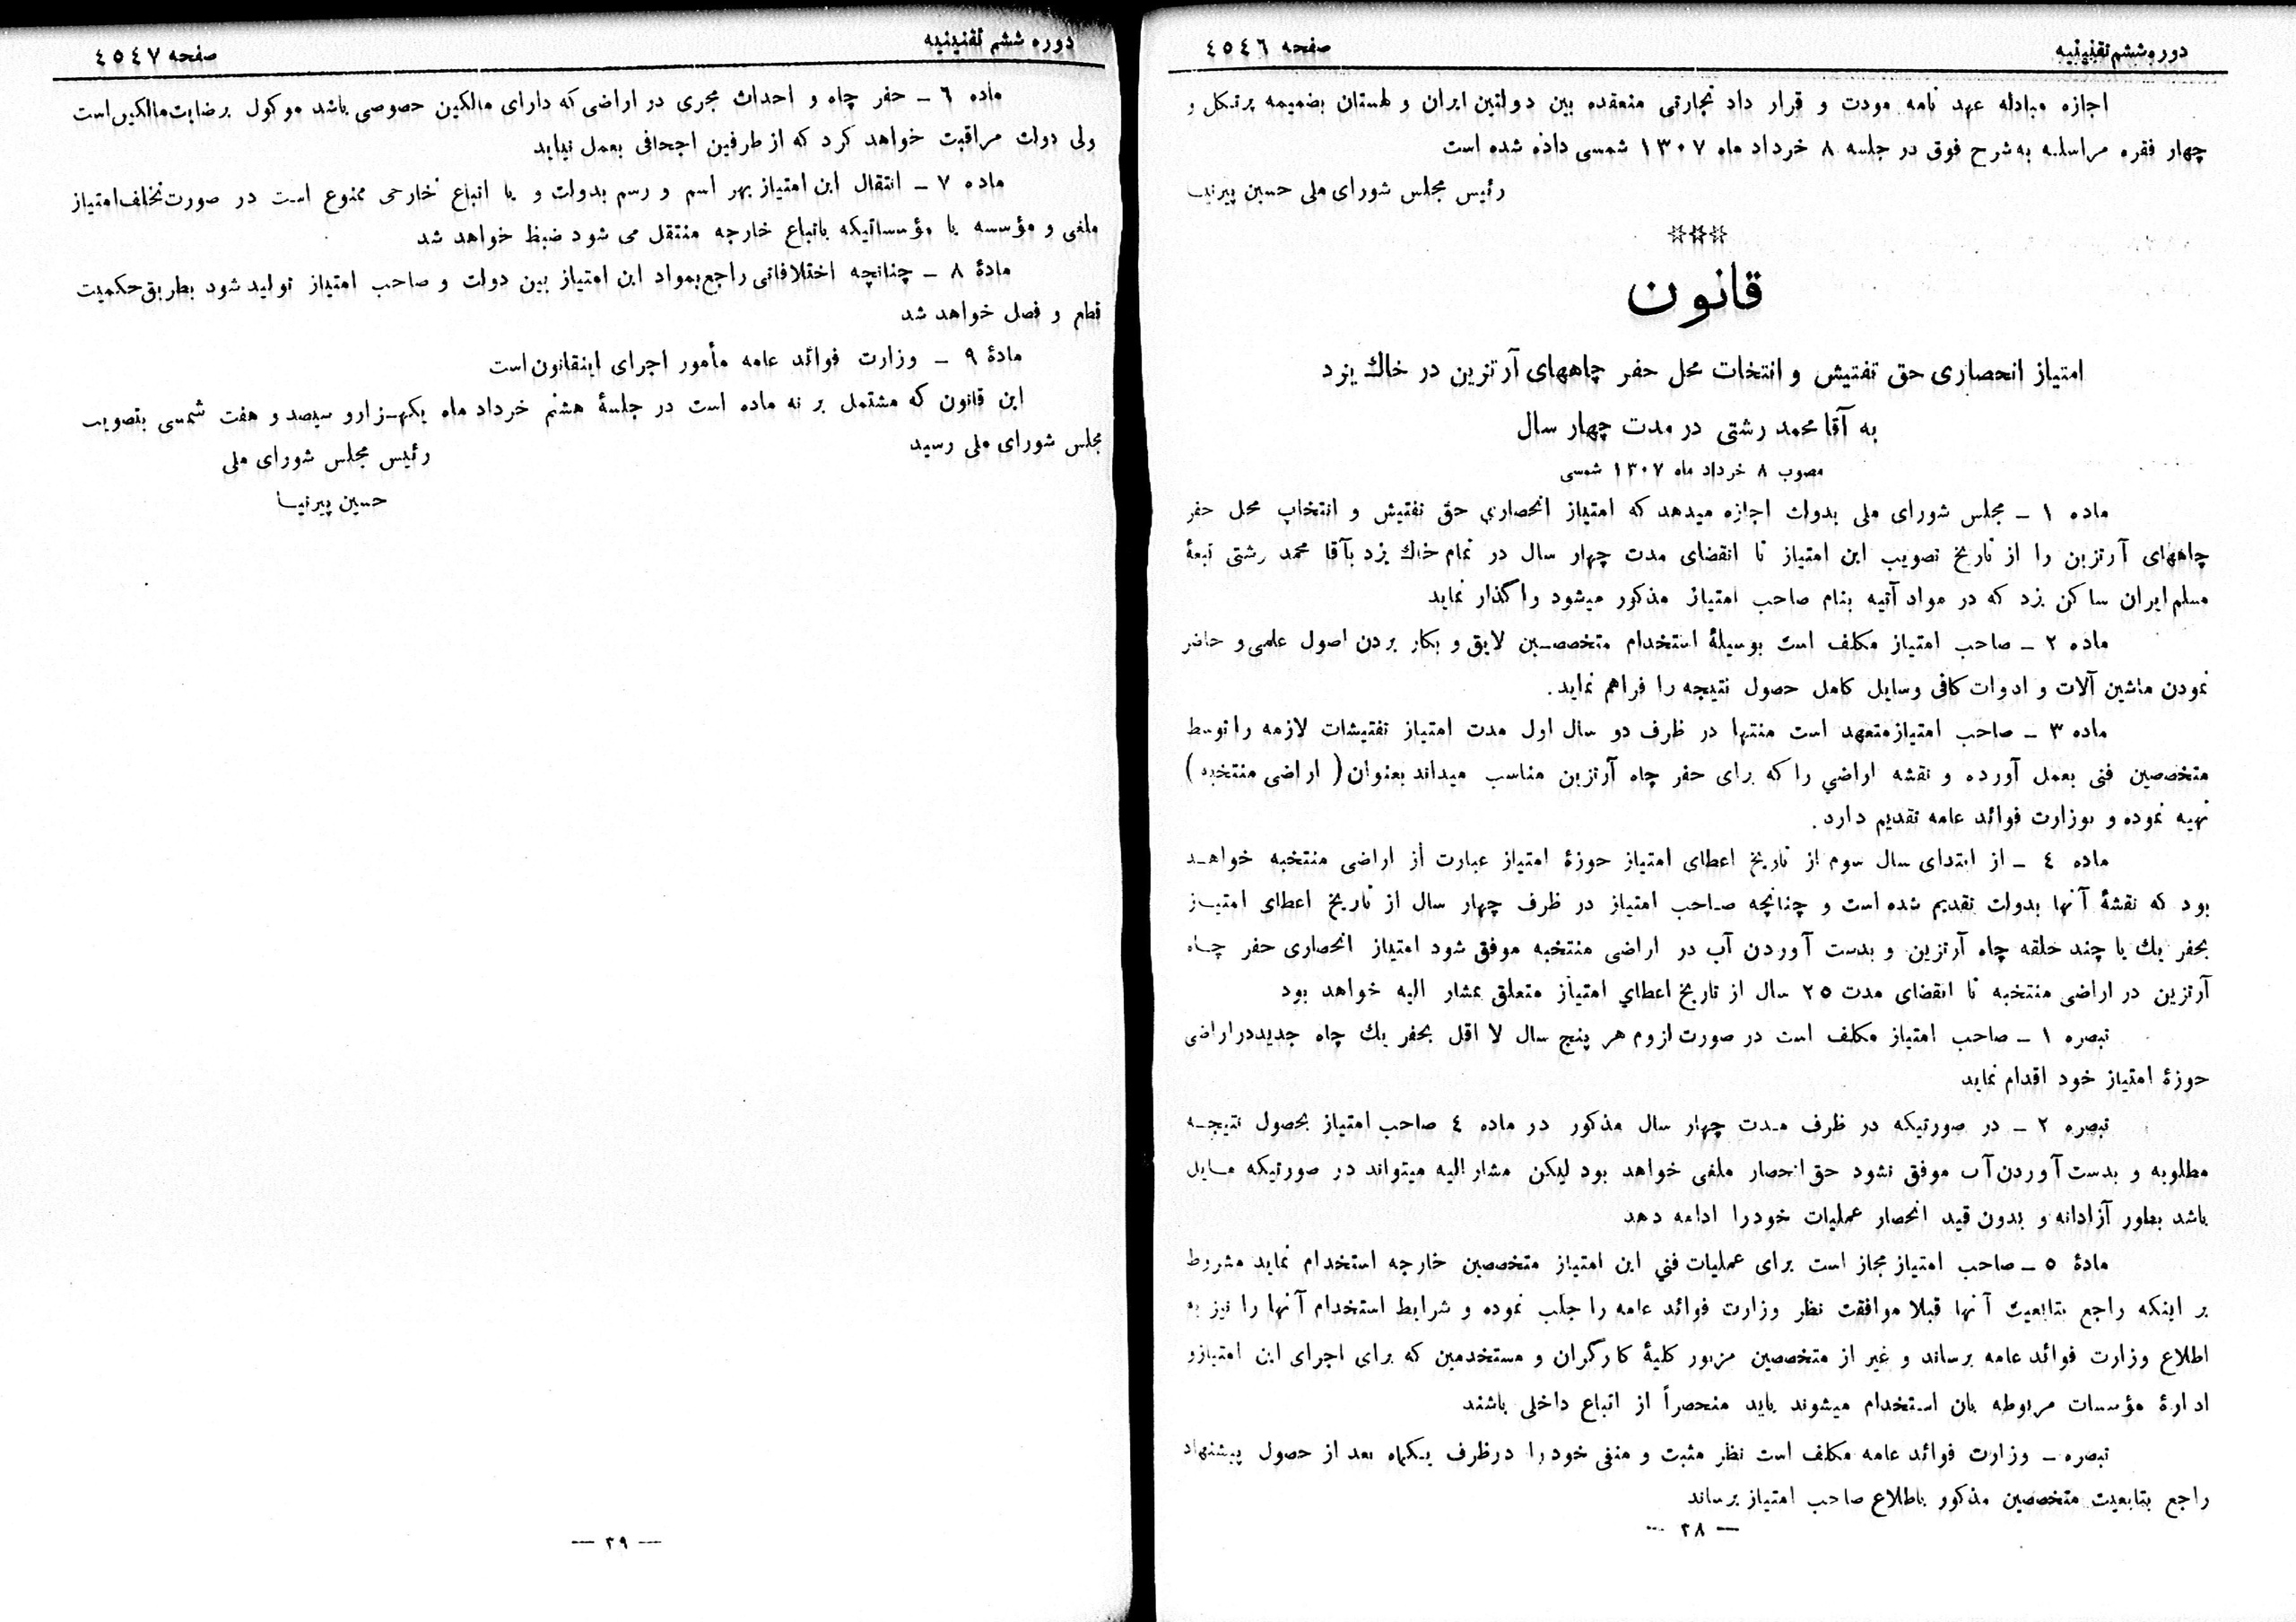 دوره ششم تقنینیه صفحه ٤٥٤٦
اجازه مبادله عهد نامه مودت و قرار داد تجارتی منعقده بین دولتین ایران و لهستان بضمیمه پرتکل و
چهار فقره مراسله به شرح فوق در جلسه ۸ خرداد ماه ۱۳۰۷ شمسی داده شده است
رئیس مجلس شورای ملی حسین پیرنیا
***
قانون
امتیاز انحصاری حق تفتیش و انتخاب محل حفر چاههای آرتزین در خاك یزد
به آقا محمد رشتی در مدت چهار سال
مصوب ۸ خرداد ماه ۱۳۰۷ شمسی
ماده ۱ ـ مجلس شورای ملی بدولت اجازه میدهد که امتیاز انحصاري حق تفتیش و انتخاب محل حفر
چاههای آرتزین را از تاریخ تصویب این امتیاز تا انقضای مدت چهار سال در تمام خاك یزد بآقا محمد رشتی تبعهٔ
مسلم ایران ساکن یزد که در مواد آتیه بنام صاحب امتیاز مذکور میشود واگذار نماید
ماده ۲ ـ صاحب امتیاز مکلف است بوسیلهٔ استخدام متخصصین لایق و بکار بردن اصول علمی و حاضر
نمودن ماشین آلات و ادوات کافی وسایل کامل حصول نتیجه را فراهم نماید.
ماده ۳ ـ صاحب امتیاز متعهد است منتها در ظرف دو سال اول مدت امتیاز تفتیشات لازمه را توسط
متخصصین فنی بعمل آورده و نقشه اراضي را که برای حفر چاه آرتزین مناسب میداند بعنوان ( اراضی منتخبه )
تهیه نموده و بوزارت فوائد عامه تقدیم دارد.
ماده ٤ ـ از ابتدای سال سوم از تاریخ اعطای امتیاز حوزهٔ امتیاز عبارت از اراضی منتخبه خواهـد
بود که نقشهٔ آنها بدولت تقدیم شده است و چنانچه صاحب امتیاز در ظرف چهار سال از تاریخ اعطای امتیـاز
بحفر یك یا چند حلقه چاه آرتزین و بدست آوردن آب در اراضی منتخبه موفق شود امتیاز انحصاری حفر چـاه
آرتزین در اراضی منتخبه تا انقضای مدت ۲٥ سال از تاریخ اعطاي امتیاز متعلق بمشار الیه خواهد بود
تبصره ۱ ـ صاحب امتیاز مکلف است در صورت لزوم هر پنج سال لا اقل بحفر یك چاه جدید در اراضی
حوزهٔ امتیاز خود اقدام نماید
تبصره ۲ ـ در صورتیکه در ظرف مـدت چهار سال مذکور در ماده ٤ صاحب امتیاز بحصول نتیجـه
مطلوبه و بدست آوردن آب موفق نشود حق انحصار ملغی خواهد بود لیکن مشار الیه میتواند در صورتیکه مـایل
باشد بطور آزادانه و بدون قید انحصار عملیات خود را ادامه دهد
مادهٔ ٥ ـ صاحب امتیاز مجاز است برای عملیات فني این امتیاز متخصصین خارجه استخدام نماید مشروط
بر اینکه راجع بتابعیت آنها قبلا موافقت نظر وزارت فوائد عامه را جلب نموده و شرایط استخدام آنها را نیز به
اطلاع وزارت فوائد عامه برساند و غیر از متخصصین مزبور کلیهٔ کارگران و مستخدمین که برای اجرای این امتیاز و
ادارهٔ مؤسسات مربوطه بان استخدام میشوند باید منحصراً از اتباع داخلی باشند
تبصره ـ وزارت فوائد عامه مکلف است نظر مثبت و منفی خود را در ظرف یکماه بعد از حصول پیشنهاد
راجع بتابعیت متخصصین مذکور باطلاع صاحب امتیاز برساند
— ۲۸ —
دوره ششم تقنینیه صفحه ٤٥٤٧
ماده ٦ ـ حفر چاه و احداث مجری در اراضی که دارای مالکین خصوصی باشد موکول برضایت مالکین است
ولی دولت مراقبت خواهد کرد که از طرفین اجحافی بعمل نیاید
ماده ۷ ـ انتقال این امتیاز بهر اسم و رسم بدولت و یا اتباع خارجی ممنوع است در صورت تخلف امتیاز
ملغی و مؤسسه یا مؤسساتیکه باتباع خارجه منتقل می شود ضبط خواهد شد
مادهٔ ۸ ـ چنانچه اختلافاتی راجع بمواد این امتیاز بین دولت و صاحب امتیاز تولید شود بطریق حکمیت
قطع و فصل خواهد شد
مادهٔ ۹ ـ وزارت فوائد عامه مأمور اجرای اینقانون است
این قانون که مشتمل بر نه ماده است در جلسهٔ هشتم خرداد ماه یکهـزار و سیصد و هفت شمسی بتصویب
مجلس شورای ملی رسید
رئیس مجلس شورای ملی
حسین پیرنیـا
— ۲۹ —